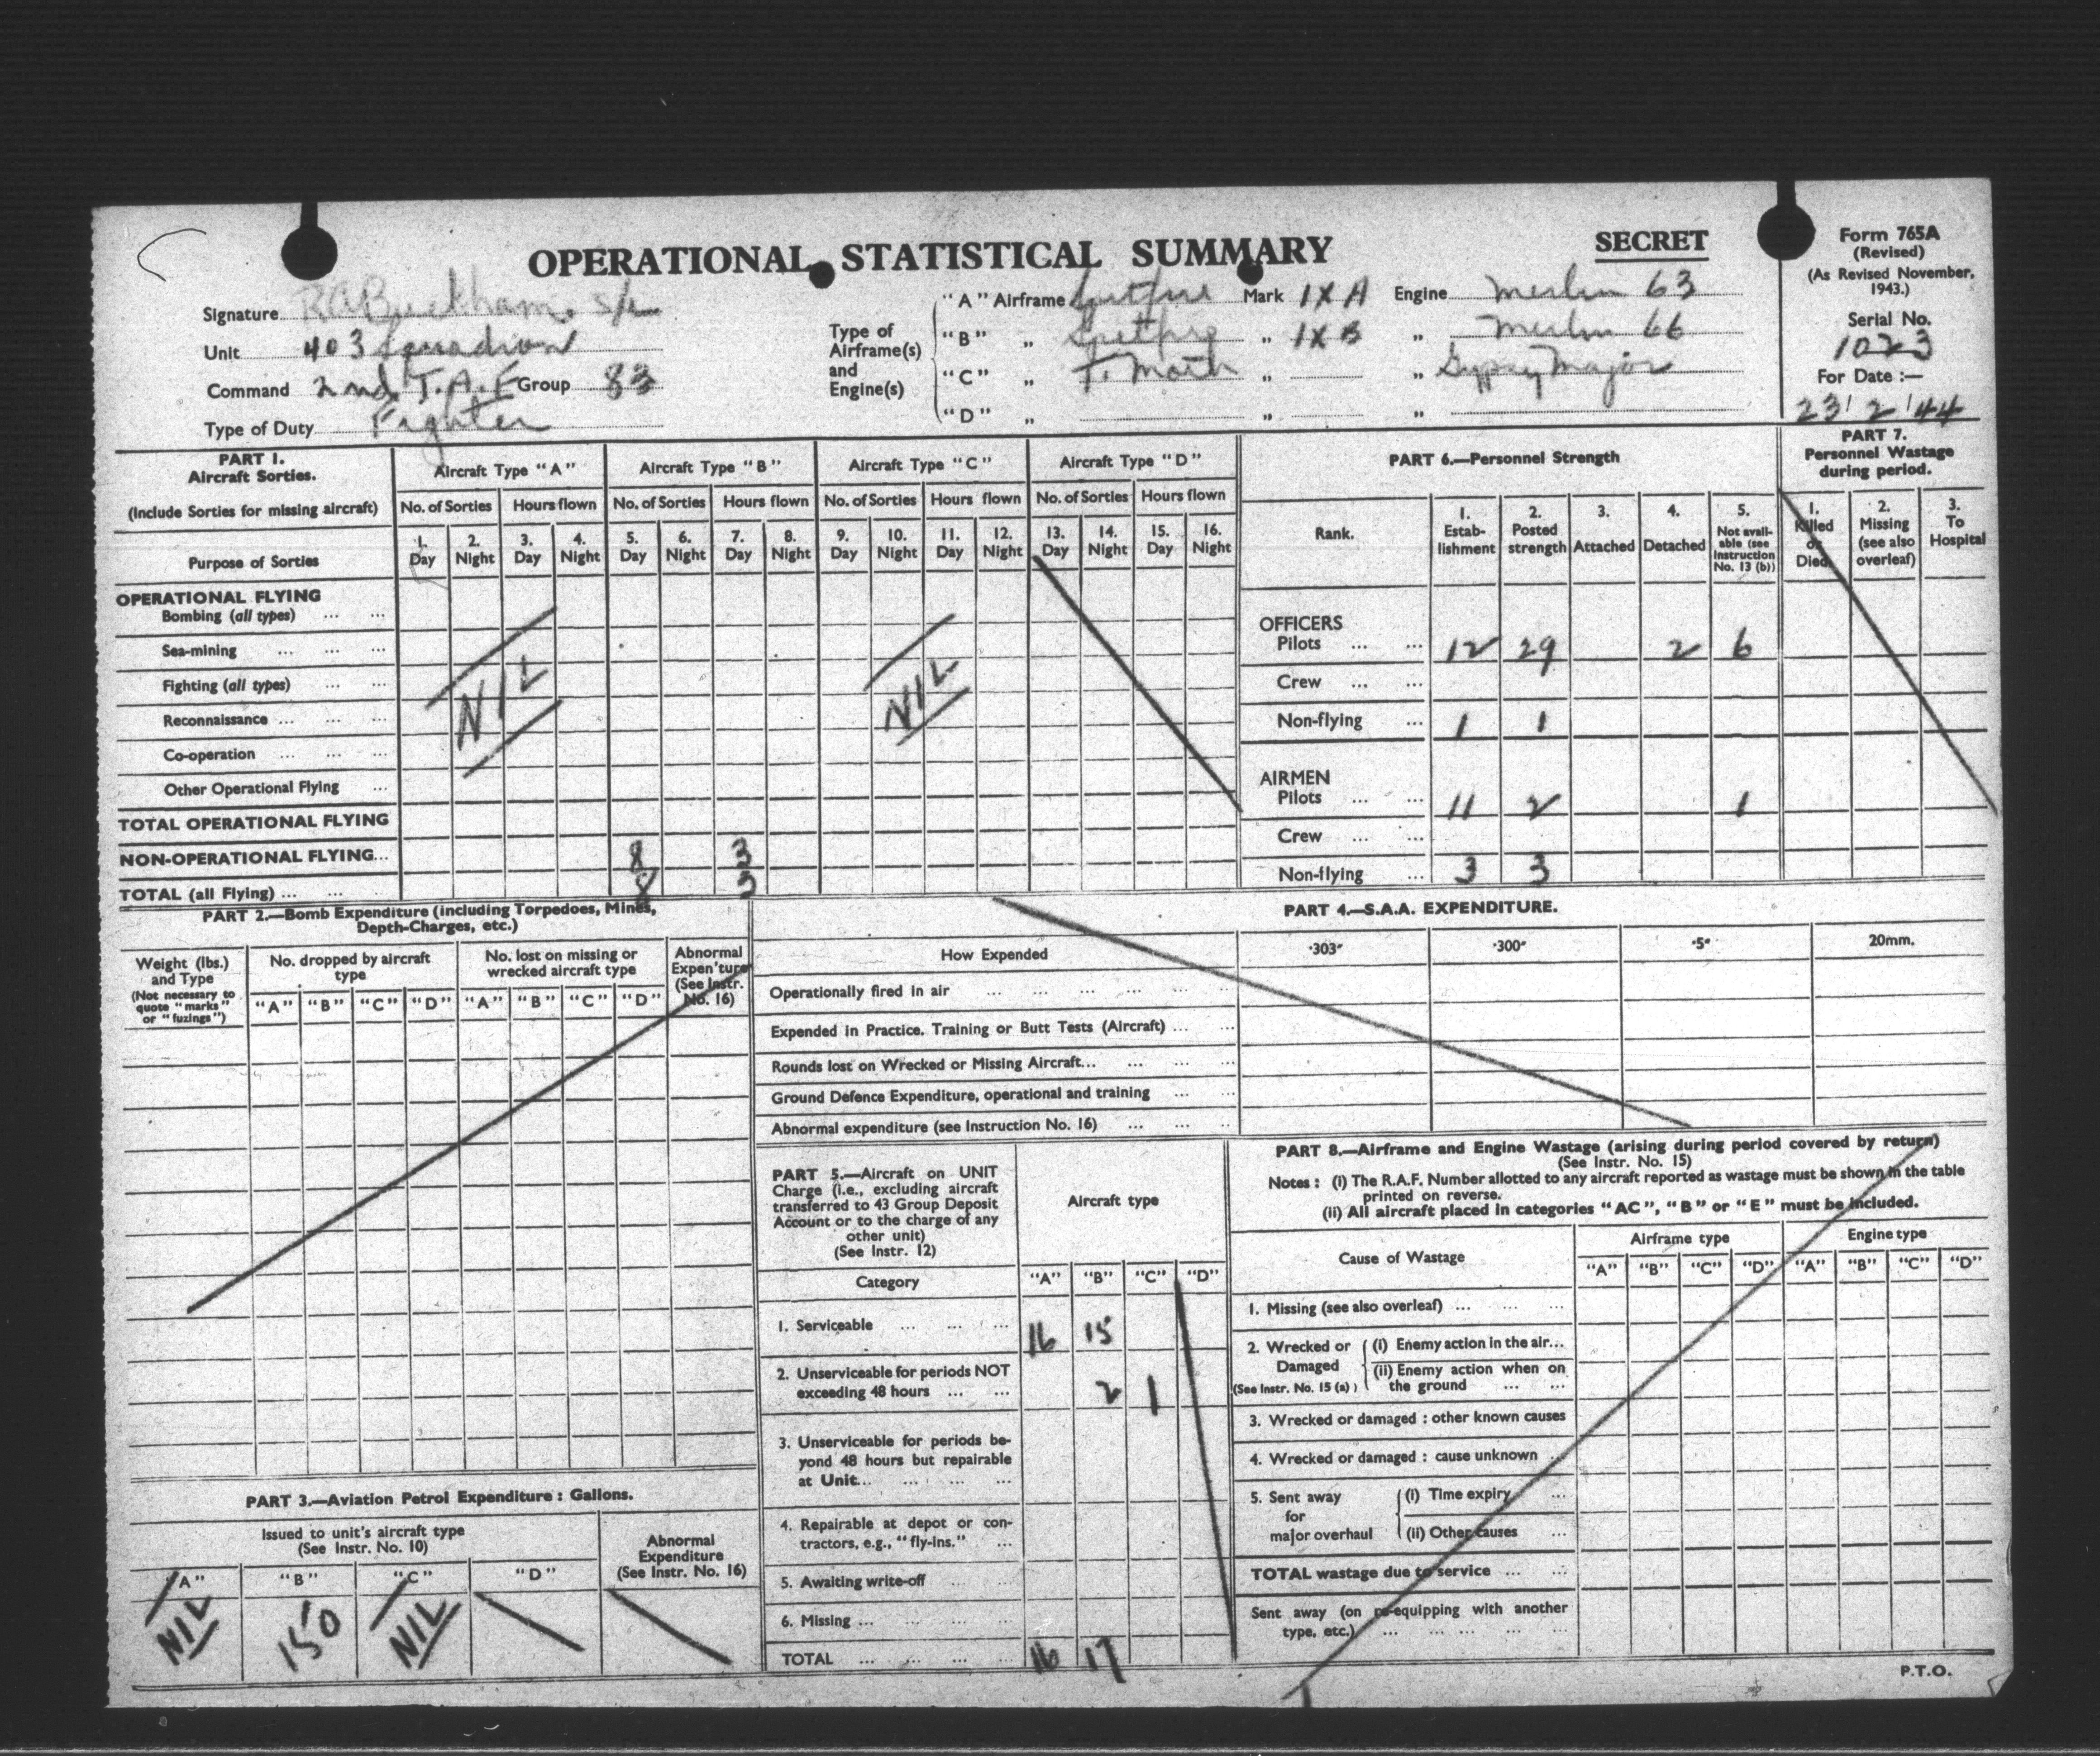 OPERATIONAL STATISTICAL SUMMARY
SECRET
Form 765A
(Revised)
(As Revised November, 1943.)
Serial No.
1023
For Date :—
23/2/44
Signature R.A. Buckham. S/L
Unit 403 Squadron
Command 2nd. T.A.F Group 83
Type of Duty Fighter
Type of Airframe(s) and Engine(s)
"A" Airframe Spitfire Mark IX A Engine Merlin 63
"B" „ Spitfire „ IX B „ Merlin 66
"C" „ T. Moth „ „ Gypsy Major
"D" „ „ „
PART 1.
Aircraft Sorties.
(Include Sorties for missing aircraft)
Purpose of Sorties
Aircraft Type "A" Aircraft Type "B" Aircraft Type "C" Aircraft Type "D"
No. of Sorties Hours flown No. of Sorties Hours flown No. of Sorties Hours flown No. of Sorties Hours flown
1. Day 2. Night 3. Day 4. Night 5. Day 6. Night 7. Day 8. Night 9. Day 10. Night 11. Day 12. Night 13. Day 14. Night 15. Day 16. Night
OPERATIONAL FLYING
Bombing (all types) ... ...
Sea-mining ... ... ...
Fighting (all types) ... ...
Reconnaissance ... ... ...
Co-operation ... ... ...
Other Operational Flying ...
NIL NIL
TOTAL OPERATIONAL FLYING
NON-OPERATIONAL FLYING... 8 3
TOTAL (all Flying) ... ... 8 3
PART 6.—Personnel Strength
Rank.
1. Establishment
2. Posted strength
3. Attached
4. Detached
5. Not available (see Instruction No. 13 (b))
OFFICERS
Pilots ... ... 12 29 2 6
Crew ... ...
Non-flying ... 1 1
AIRMEN
Pilots ... ... 11 2 1
Crew ... ...
Non-flying ... 3 3
PART 7.
Personnel Wastage during period.
1. Killed or Died
2. Missing (see also overleaf)
3. To Hospital
PART 2.—Bomb Expenditure (including Torpedoes, Mines,
Depth-Charges, etc.)
Weight (lbs.) and Type
(Not necessary to quote "marks" or "fuzings")
No. dropped by aircraft type
No. lost on missing or wrecked aircraft type
Abnormal Expen'ture (See Instr. No. 16)
"A" "B" "C" "D" "A" "B" "C" "D"
PART 3.—Aviation Petrol Expenditure : Gallons.
Issued to unit's aircraft type
(See Instr. No. 10)
Abnormal Expenditure (See Instr. No. 16)
"A" "B" "C" "D"
NIL 150 NIL
PART 4.—S.A.A. EXPENDITURE.
How Expended ·303" ·300" ·5" 20mm.
Operationally fired in air ... ... ... ... ...
Expended in Practice. Training or Butt Tests (Aircraft) ... ...
Rounds lost on Wrecked or Missing Aircraft... ... ... ...
Ground Defence Expenditure, operational and training ... ...
Abnormal expenditure (see Instruction No. 16) ... ... ..
PART 5.—Aircraft on UNIT
Charge (i.e., excluding aircraft
transferred to 43 Group Deposit
Account or to the charge of any
other unit)
(See Instr. 12)
Aircraft type
Category "A" "B" "C" "D"
1. Serviceable ... ... ... 16 15
2. Unserviceable for periods NOT
exceeding 48 hours ... ... 2 1
3. Unserviceable for periods be-
yond 48 hours but repairable
at Unit... ... ... ...
4. Repairable at depot or con-
tractors, e.g., "fly-ins." ...
5. Awaiting write-off ... ...
6. Missing ... ... ... ...
TOTAL ... ... ... ... 16 17
PART 8.—Airframe and Engine Wastage (arising during period covered by return)
(See Instr. No. 15)
Notes : (i) The R.A.F. Number allotted to any aircraft reported as wastage must be shown in the table
printed on reverse.
(ii) All aircraft placed in categories "AC", "B" or "E" must be included.
Cause of Wastage Airframe type Engine type
"A" "B" "C" "D" "A" "B" "C" "D"
1. Missing (see also overleaf) ... ... ...
2. Wrecked or Damaged (See Instr. No. 15 (a) )
(i) Enemy action in the air...
(ii) Enemy action when on the ground ... ...
3. Wrecked or damaged : other known causes
4. Wrecked or damaged : cause unknown ..
5. Sent away for major overhaul
(i) Time expiry ...
(ii) Other causes ...
TOTAL wastage due to service ... ...
Sent away (on re-equipping with another
type, etc.) ... ... ... ... ...
P.T.O.